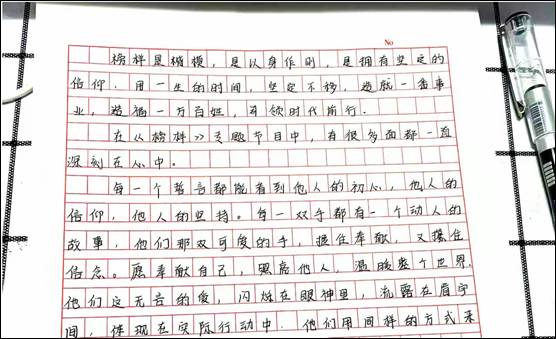 No
榜样是楷模，是以身作则，是拥有坚定的
信仰，用一生的时间，坚定不移，造就一番事
业，造福一方百姓，引领时代前行。
在《榜样》专题节目中，有很多面都一直
深刻在心中。
每一个誓言都能看到他人的初心，他人的
信仰，他人的坚持。每一双手都有一个动人的
故事，他们那双可爱的手，握住奉献，又握住
信念。愿奉献自己，照亮他人，温暖整个世界。
他们这无言的爱，闪烁在眼神里，流露在眉宇
间，体现在实际行动中，他们用同样的方式来